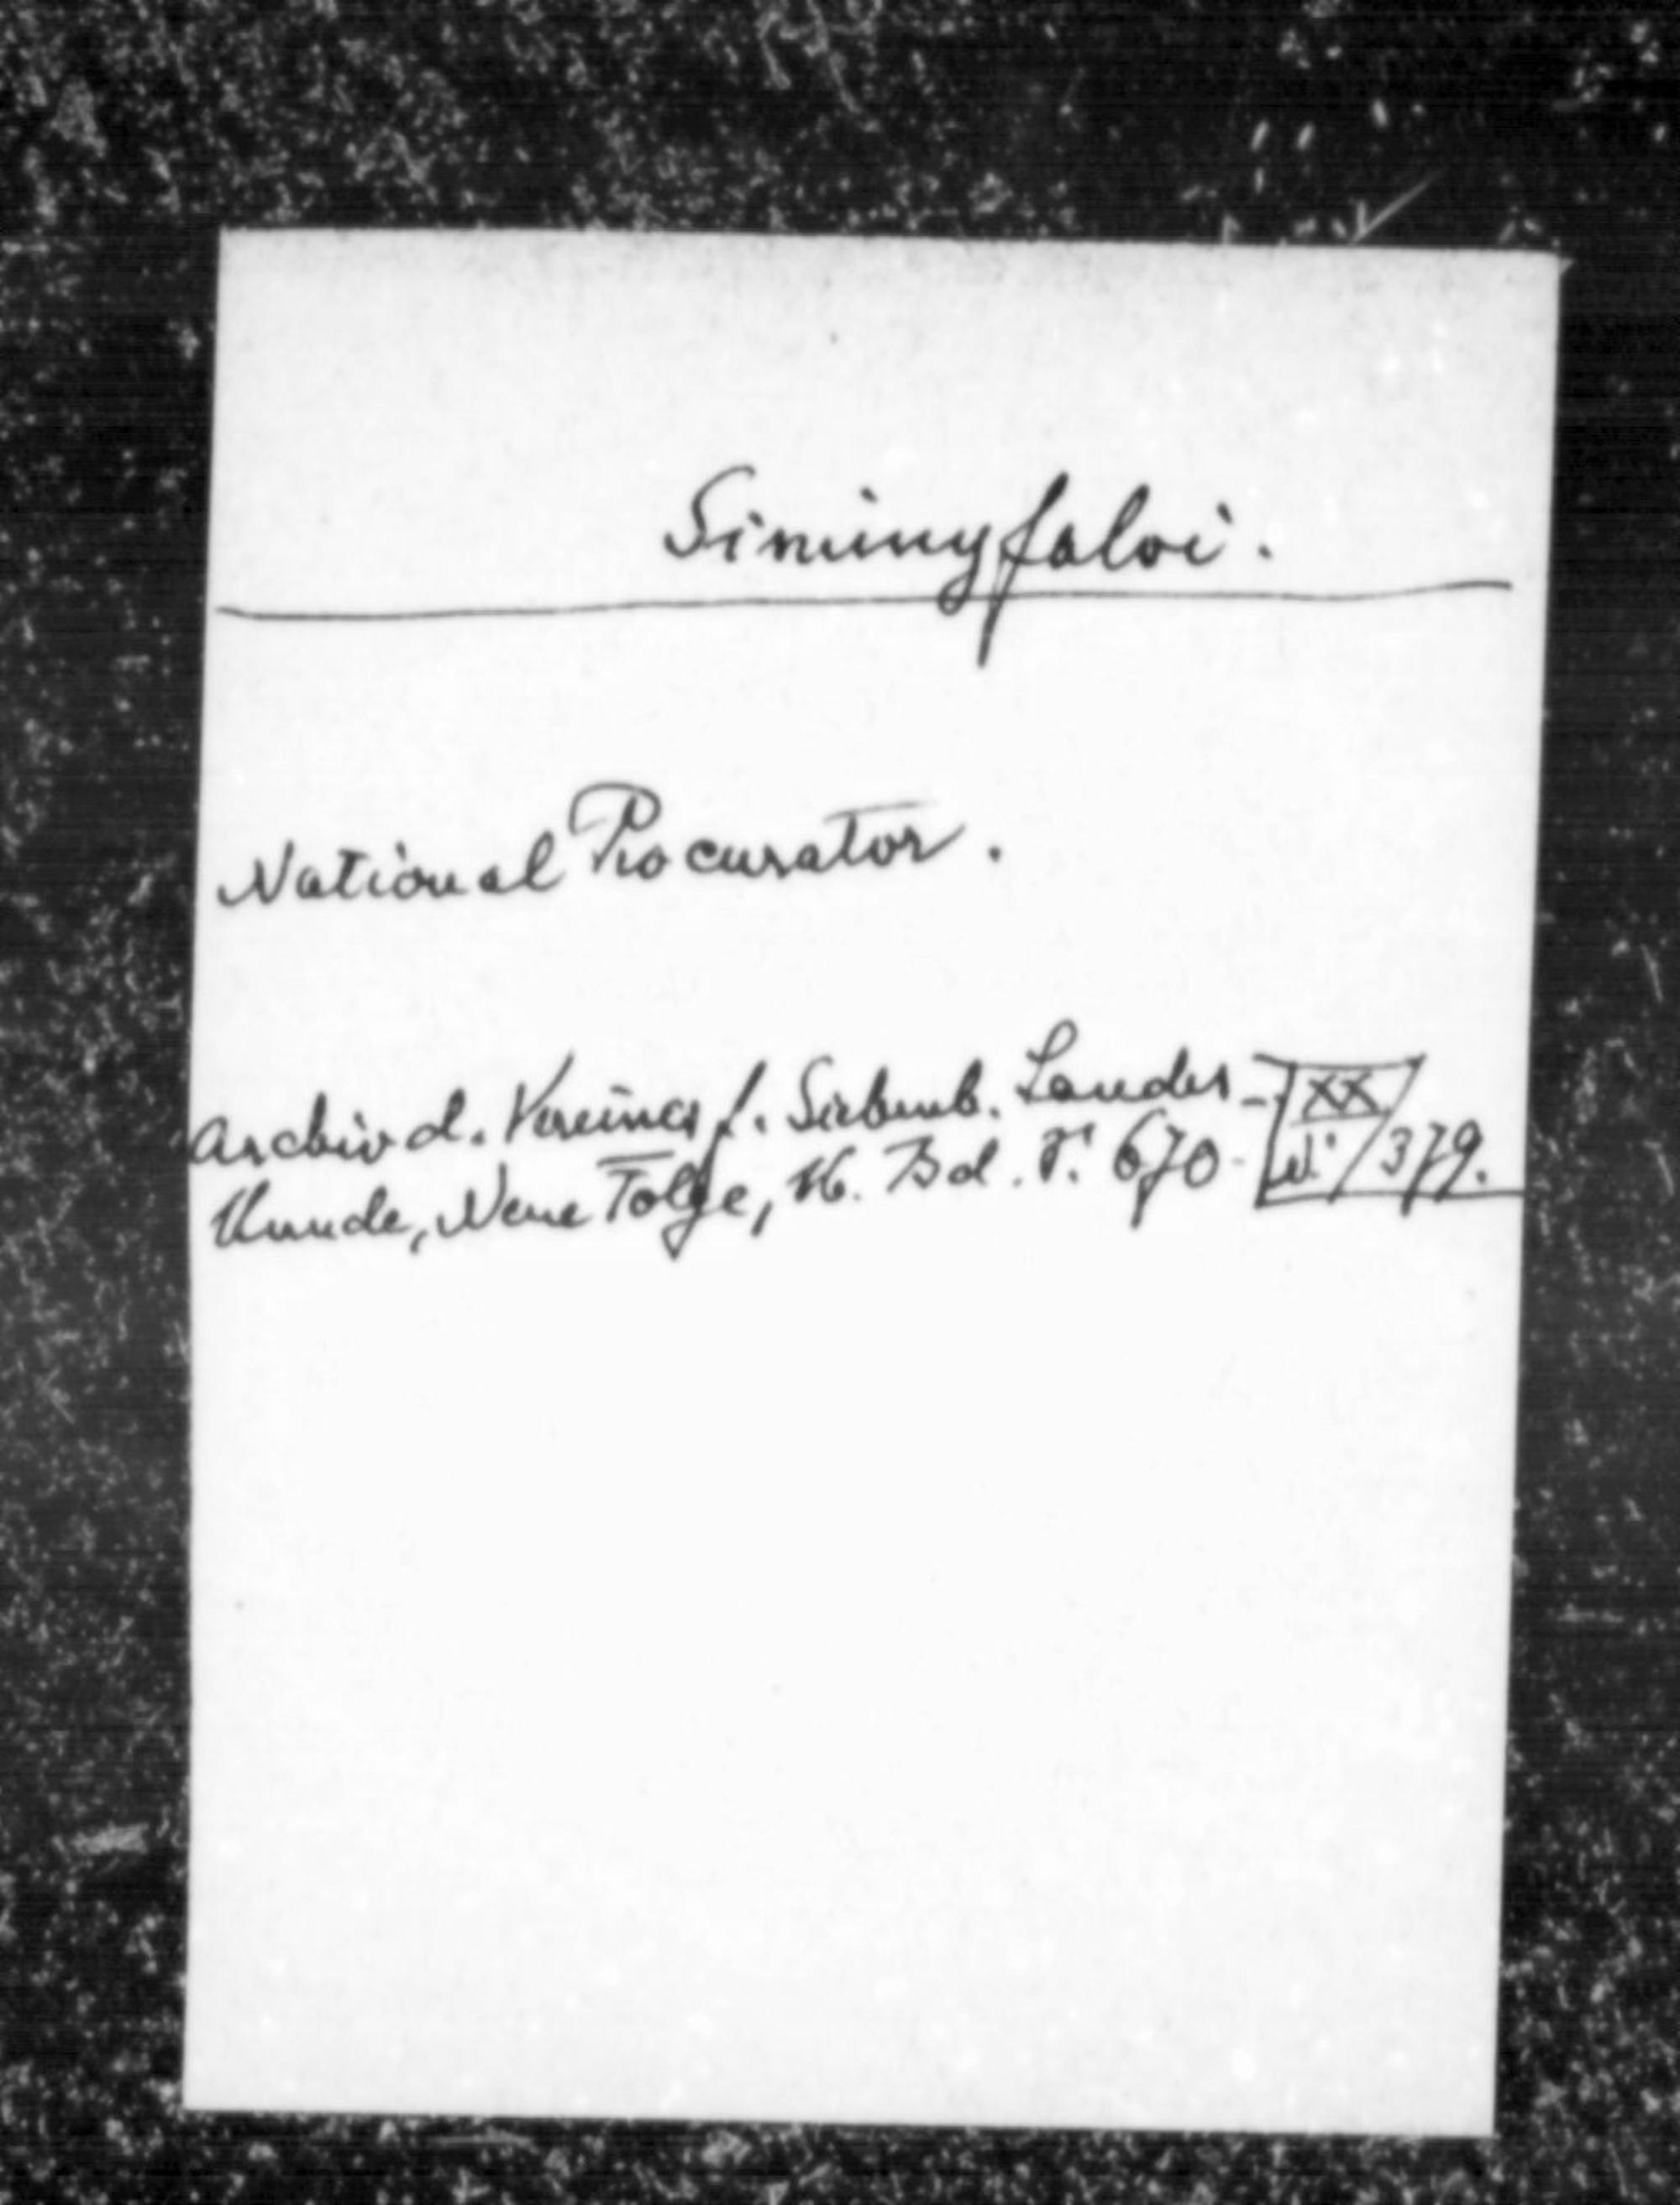 Siminyfalvi.
National Procurator.
Archiv d. Vereines f. Siebenb. Landes-
Kunde, Neue Folge, 16. Bd. S. 670.
XX
N: / 379.